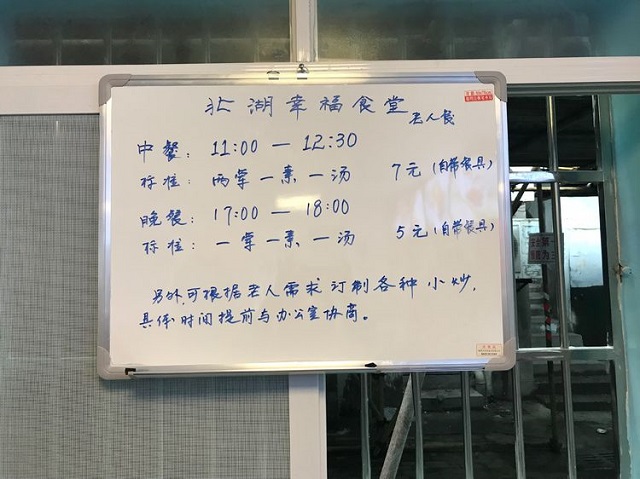 北湖幸福食堂
老人餐
中餐: 11:00 — 12:30
标准: 两荤一素一汤 7元(自带餐具)
晚餐: 17:00 — 18:00
标准: 一荤一素一汤 5元(自带餐具)
另外,可根据老人需求订制各种小炒,
具体时间提前与办公室协商。